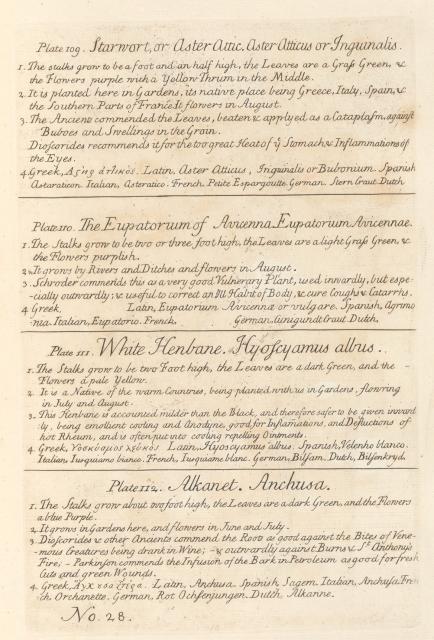 Plate 109. Starwort, or Aster Attic. Aster Atticus or Inguinalis.
1. The stalks grow to be a foot and an half high, the Leaves are a Graſs Green, &
the Flowers purple with a Yellow Thrum in the Middle.
2. It is planted here in Gardens, its native place being Greece, Italy, Spain, &
the Southern Parts of France. It flowers in August.
3. The Ancients commended the Leaves, beaten & applyed as a Cataplaſm, against
Buboes and Swellings in the Groin.
Dioſcorides recommends it for the too great Heat of ẙ Stomach & Inflammations of
the Eyes.
4. Greek, Ἀςὴρ ἀτλικός. Latin, Aster Atticus, Inguinalis or Bubonium. Spanish
Astaraticon. Italian, Asteratico. French, Petite Espargoutte. German, Stern Craut. Dutch
Plate 110. The Eupatorium of Avicenna. Eupatorium Avicennae.
1. The Stalks grow to be two or three foot high, the Leaves are a light Graſs Green, &
the Flowers purplish.
2. It grows by Rivers and Ditches and flowers in August.
3. Schroder commends this as a very good Vulnerary Plant, used inwardly, but espe-
-cially outwardly; & useful to correct an Ill Habit of Body, & cure Coughs & Catarrhs.
4. Greek, Latin, Eupatorium Avicennæ or vulgare. Spanish, Agrimo
nia. Italian, Eupatorio. French, German, Cunigundt Craut. Dutch,
Plate 111. White Henbane. Hyoſcyamus albus.
1. The Stalks grow to be two Foot high, the Leaves are a dark Green, and the -
Flowers a pale Yellow.
2. It is a Native of the warm Countries, being planted with us in Gardens, flowring
in July and August.
3. This Henbane is accounted milder than the Black, and therefore safer to be given inward
:ly, being emollient cooling and Anodyne, good for Inflamations, and Defluctions of
hot Rheum, and is often put into cooling repelling Ointments.
4. Greek, Υοσκύαμος λεῦκός. Latin, Hyoſcyamus albus. Spanish, Velenho blanco.
Italian, Iusquiamo bianco. French, Iusquiame blanc. German, Bilſam. Dutch, Bilſenkryd.
Plate 112. Alkanet. Anchusa.
1. The Stalks grow about two foot high, the Leaves are a dark Green, and the Flowers
a blue Purple.
2. It grows in Gardens here, and flowers in June and July.
3. Dioſcorides & other Ancients commend the Root as good against the Bites of Vene-
-mous Creatures being drank in Wine; - & outwardly against Burns & St. Anthony's
Fire; - Parkinſon commends the Infusion of the Bark in Petroleum as good for fresh
Cuts and green Wounds.
4. Greek, Latin, Anchusa. Spanish, Sagem. Italian, Anchuſa. Fren
ch, Orchanette. German, Rot Ochſenzungen. Dutch, Alkanne.
No. 28.